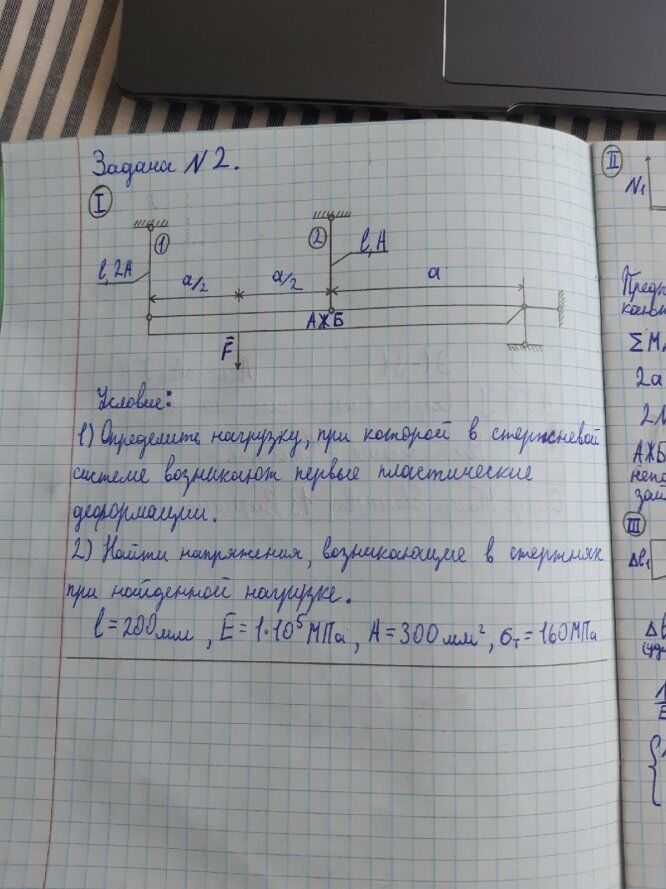 Задача №2.
I
1
2
l, 2A
l, A
a/2
a/2
a
АЖБ
F̄
Условие:
1) Определить нагрузку, при которой в стержневой
системе возникают первые пластические
деформации.
2) Найти напряжения, возникающие в стержнях
при найденной нагрузке.
l = 200мм, E = 1·10⁵ МПа, A = 300 мм², σт = 160МПа
II
N₁
ΣM
2a
2N
АЖБ
III
Δl₁